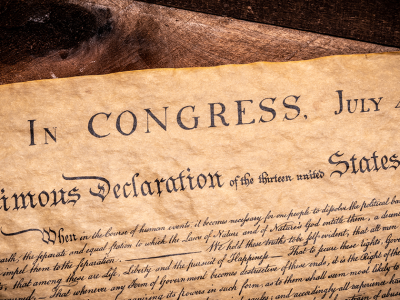 IN CONGRESS, JULY 4
imous Declaration of the thirteen united States
When in the Course of human events, it becomes necessary for one people to dissolve the political ba
earth, the separate and equal station to which the Laws of Nature and of Nature's God entitle them, a
impel them to the separation. We hold these truths to be self-evident, that all men
that among these are Life, Liberty and the pursuit of Happiness — That to secure these rights, Gover
That whenever any Form of Government becomes destructive of these ends, it is the Right of the
its powers in such form, as to them shall seem most likely to
and accordingly all experience ha